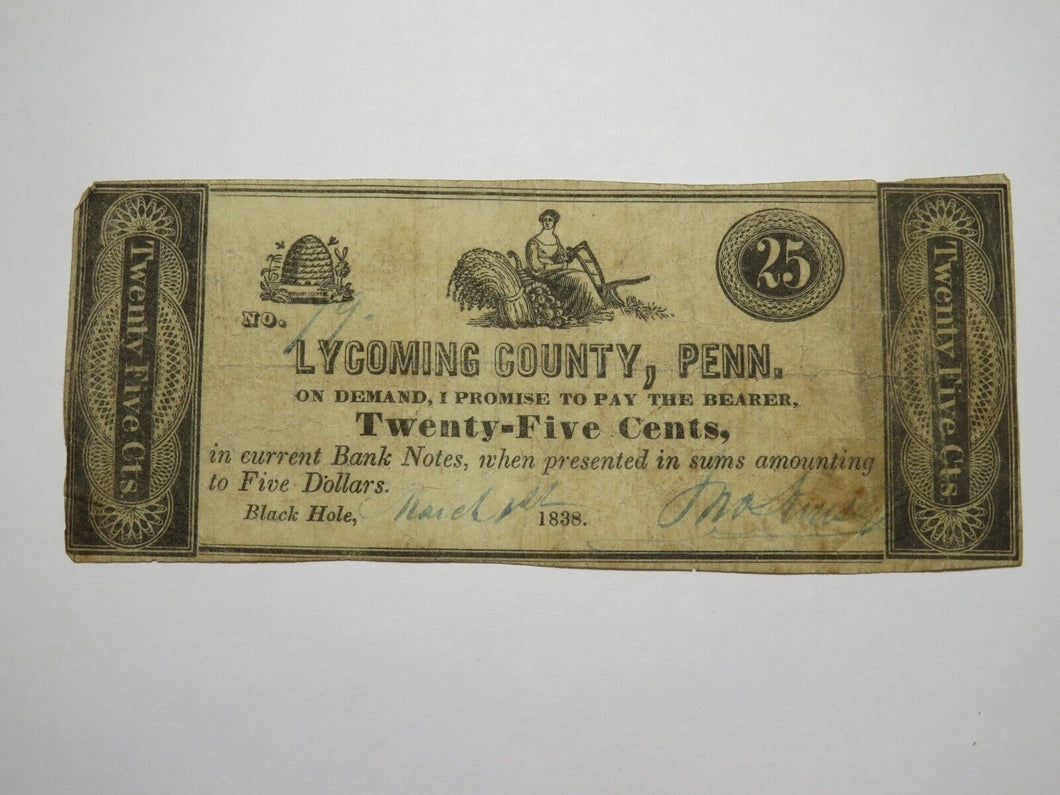 Twenty Five Cts.
25
No. 19.
LYCOMING COUNTY, PENN.
ON DEMAND, I PROMISE TO PAY THE BEARER,
Twenty-Five Cents,
in current Bank Notes, when presented in sums amounting
to Five Dollars.
Black Hole, March 1st 1838.
Twenty Five Cts.